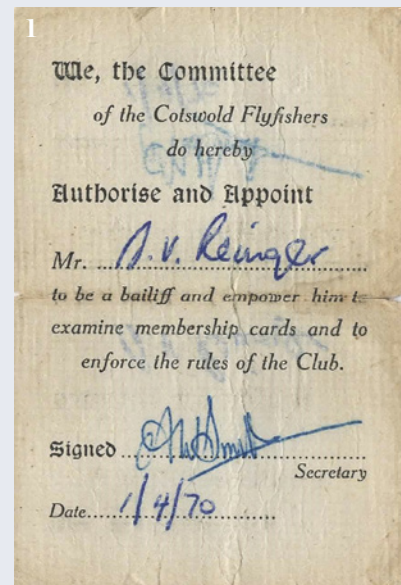 1
We, the Committee
of the Cotswold Flyfishers
do hereby
Authorise and Appoint
Mr. ........................
to be a bailiff and empower him to
examine membership cards and to
enforce the rules of the Club.
Signed ........................
Secretary
Date.....1/4/70.........